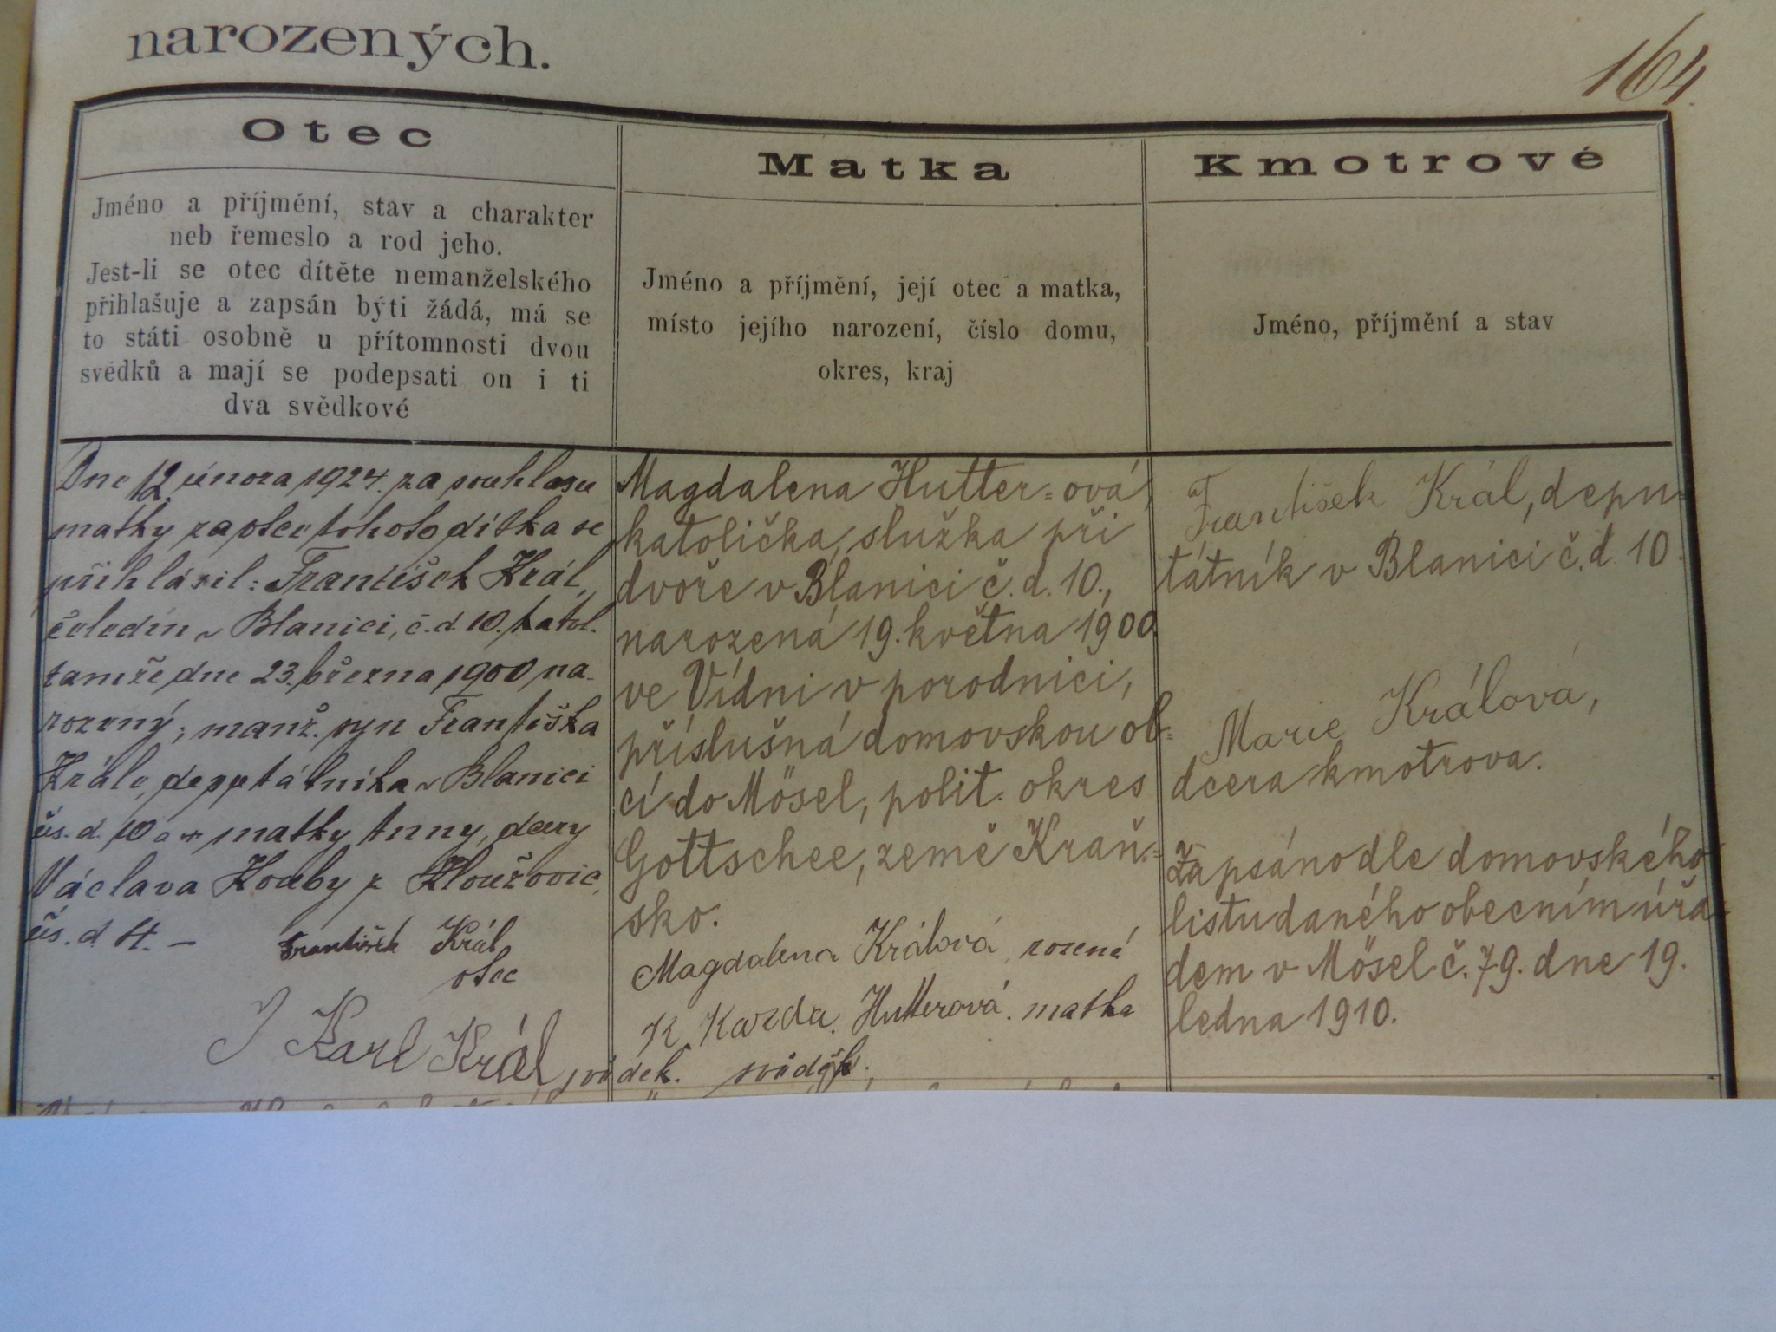 narozených.
164.
Otec
Jméno a příjmění, stav a charakter
neb řemeslo a rod jeho.
Jest-li se otec dítěte nemanželského
přihlašuje a zapsán býti žádá, má se
to státi osobně u přítomnosti dvou
svědků a mají se podepsati on i ti
dva svědkové
Dne 12 února 1924. za souhlasu
matky za otce tohoto dítka se
přihlásil: František Král,
čeledín v Blanici, č. d. 10. katol.
tamže dne 23. března 1900 na-
rozený, manž. syn Františka
Krále, deputátníka v Blanici
čís. d. 10 a matky Anny, dcery
Václava Kouby z
čís. d. 4. —
František Král
otec
Karl Král, svědek.
Matka
Jméno a příjmění, její otec a matka,
místo jejího narození, číslo domu,
okres, kraj
Magdalena Hutter=ová,
katolička, služka při
dvoře v Blanici č. d. 10.,
narozená 19. května 1900
ve Vídni v porodnici,
příslušná domovskou ob=
cí do Mösel, polit. okres
Gottschee, země Kraň=
sko.
Magdalena Králová rozená
Hutterová. matka
K Kazda.
svědek.
Kmotrové
Jméno, příjmění a stav
František Král, depu-
tátník v Blanici č. d. 10.
Marie Králová,
dcera kmotrova.
Zapsáno dle domovského
listu daného obecním úřa-
dem v Mösel č. 79. dne 19.
ledna 1910.